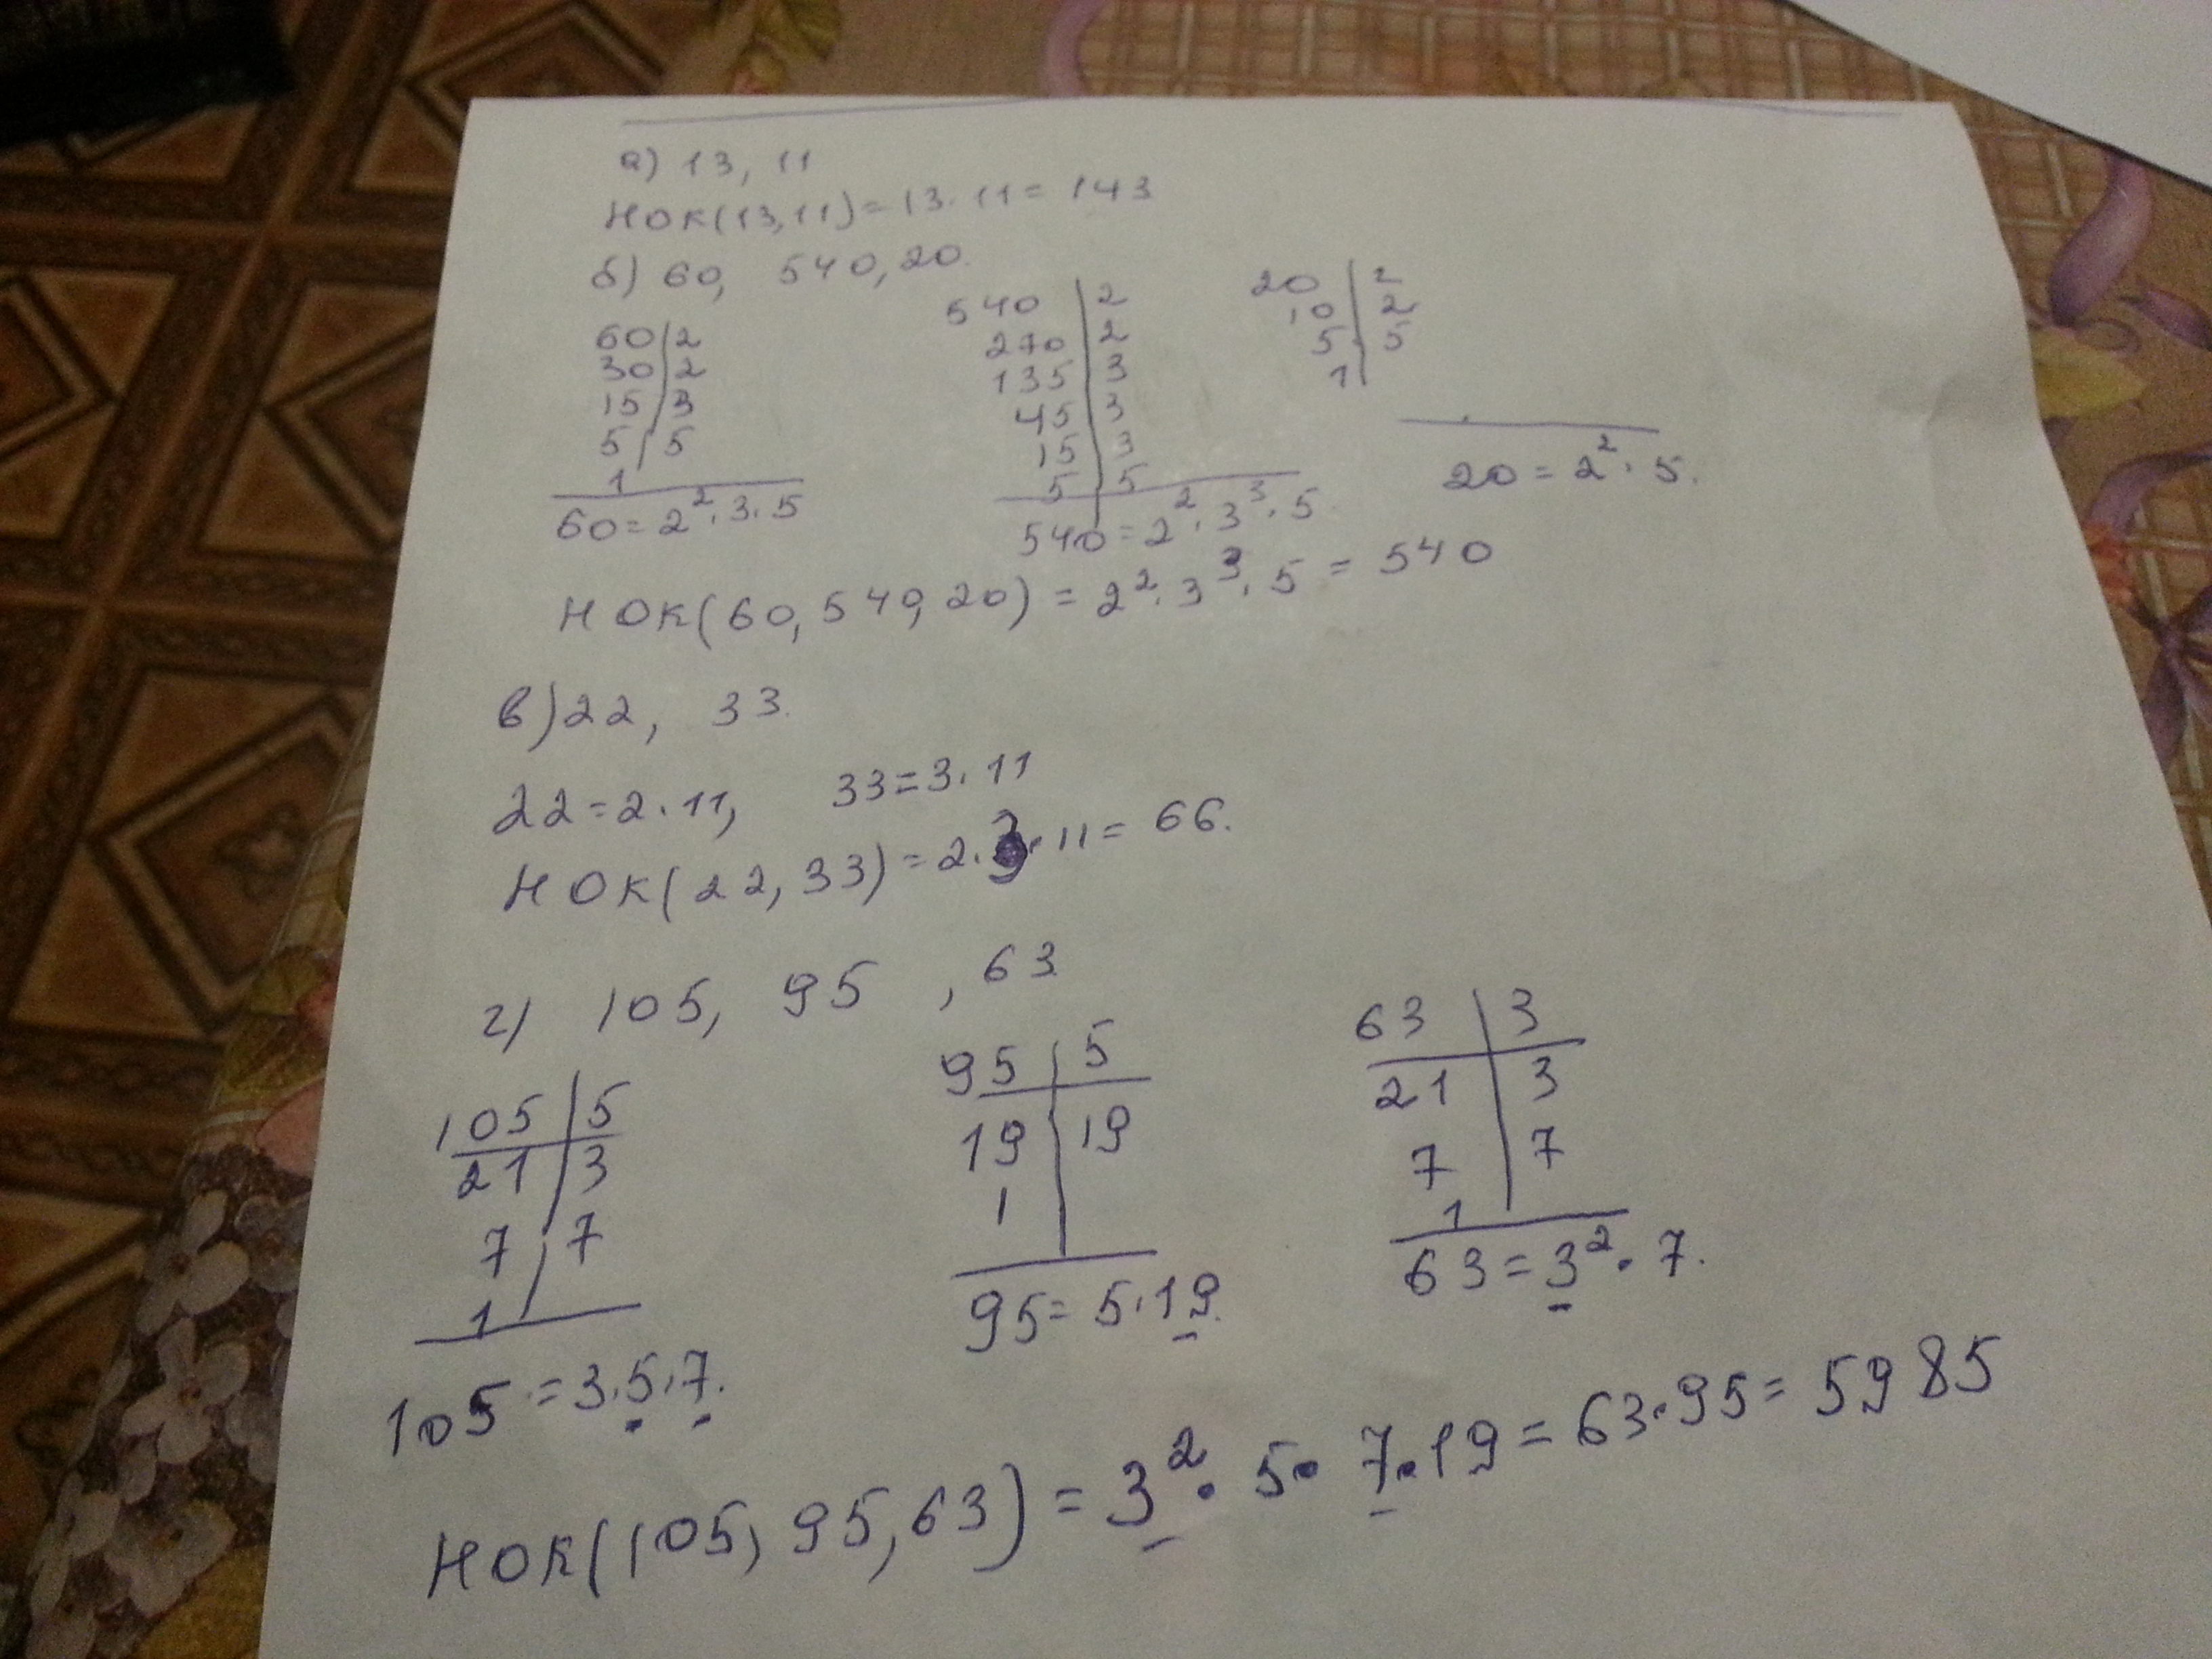 а) 13, 11
НОК(13,11)=13·11=143
б) 60, 540, 20.
60|2
30|2
15|3
5|5
1
60=2²·3·5
540|2
270|2
135|3
45|3
15|3
5|5
540=2²·3³·5
20|2
10|2
5|5
1
20=2²·5.
НОК(60,540,20)=2²·3³·5=540
в) 22, 33.
22=2·11, 33=3·11
НОК(22,33)=2·3·11=66.
г) 105, 95, 63
105|5
21|3
7|7
1
105=3·5·7.
95|5
19|19
1
95=5·19.
63|3
21|3
7|7
1
63=3²·7.
НОК(105,95,63)=3²·5·7·19=63·95=5985